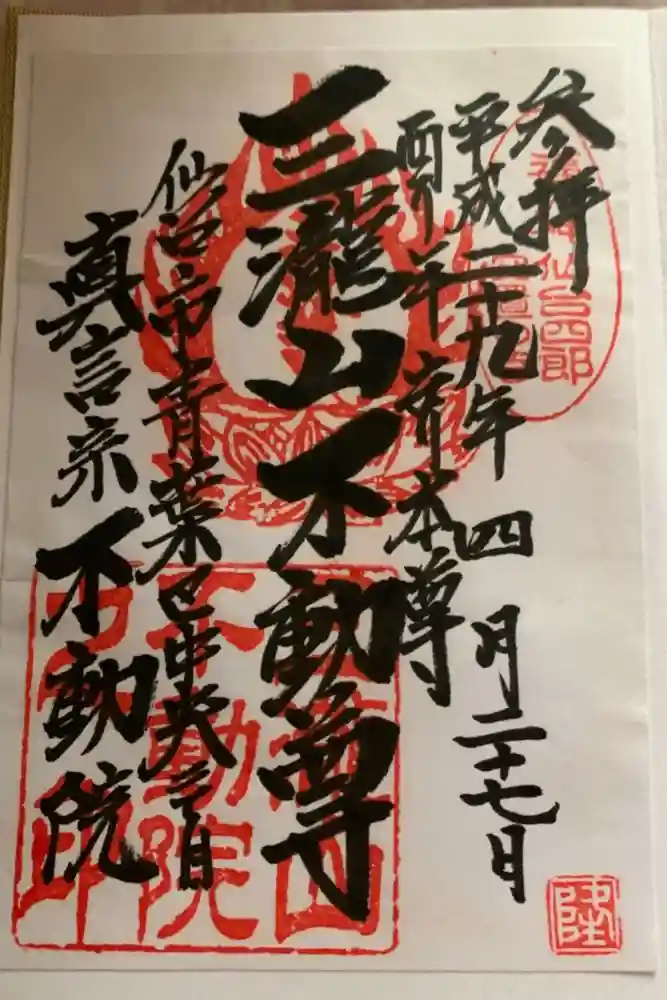 参拝
平成二十九年四月二十七日
酉り年守本尊
三瀧山不動尊
仙台市青葉区中央二丁目
真言宗不動院
仙台四郎
不動院